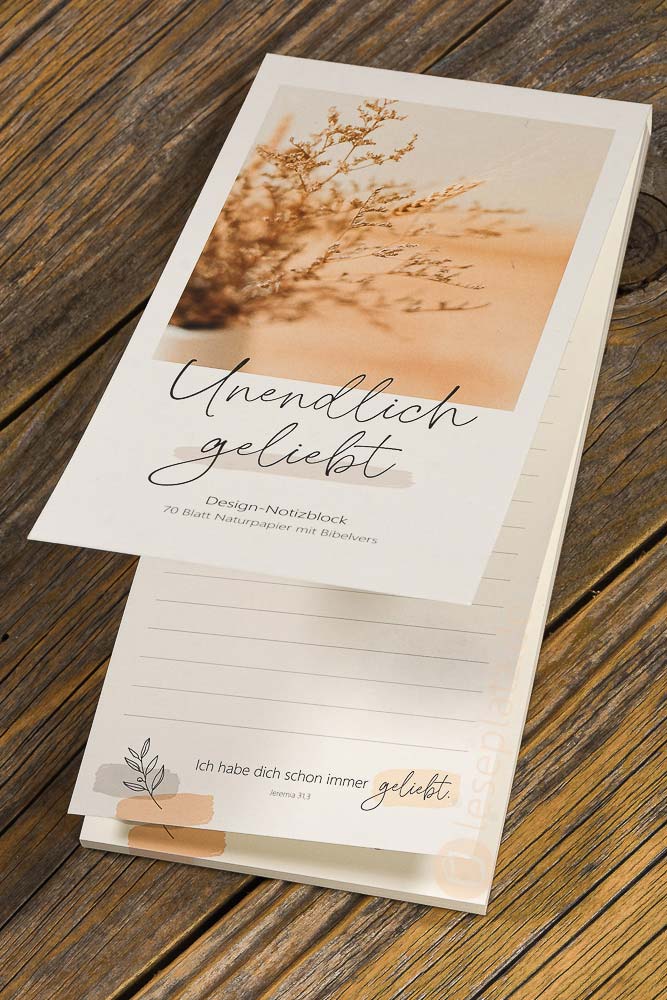 Unendlich
geliebt
Design-Notizblock
70 Blatt Naturpapier mit Bibelvers
Ich habe dich schon immer geliebt.
Jeremia 31,3